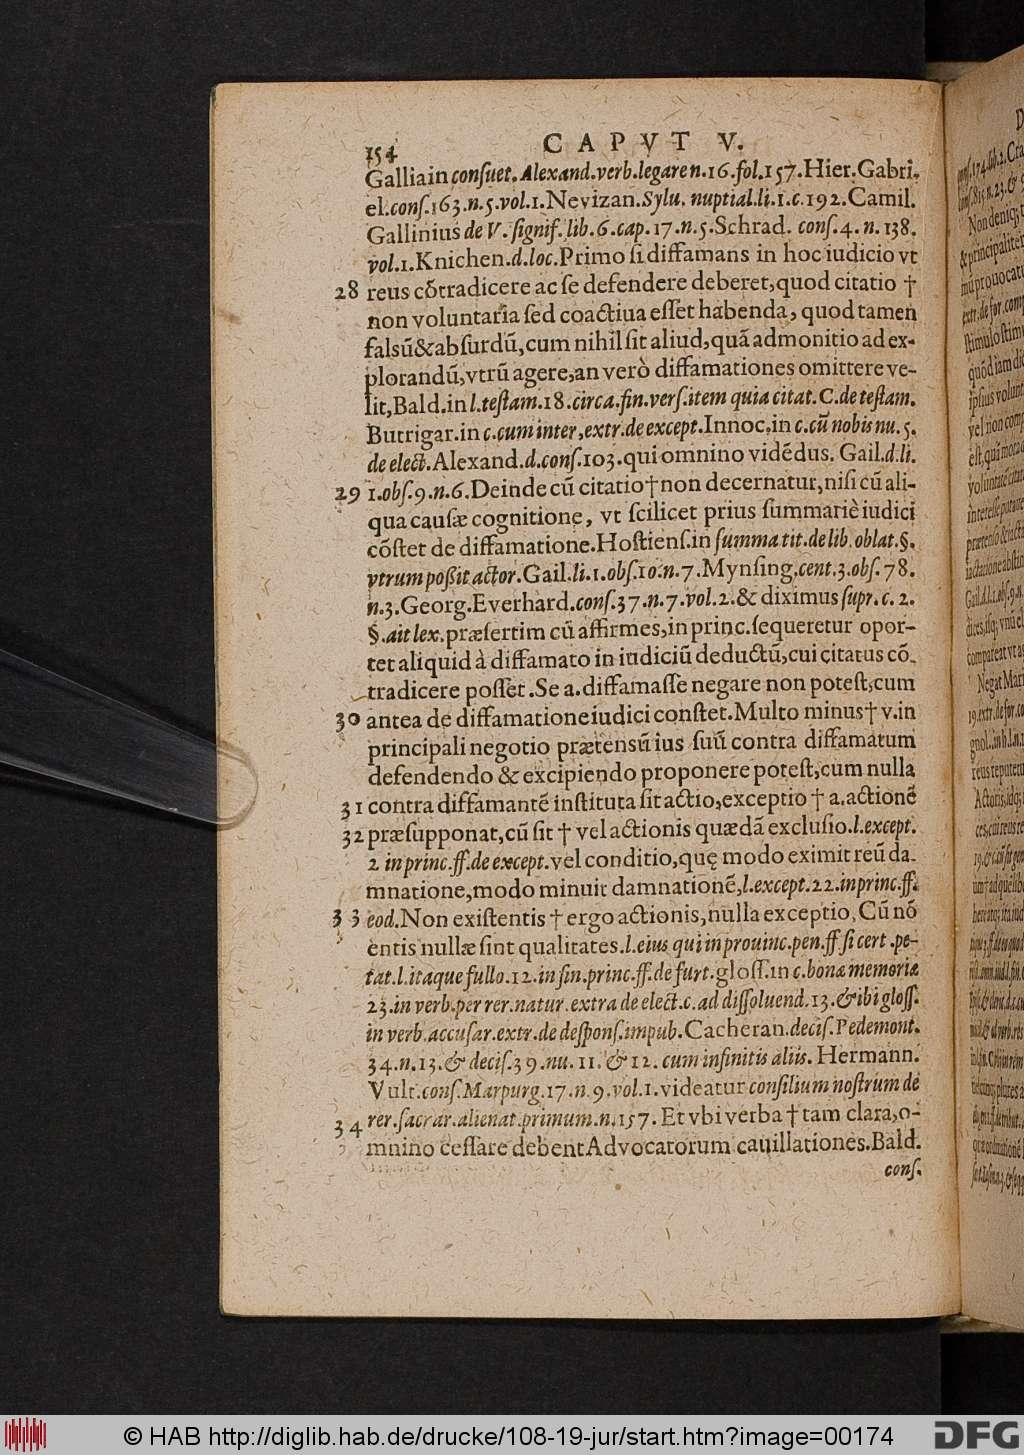 154
CAPVT V.
Galliain consuet. Alexand. verb. legare n. 16. fol. 157. Hier. Gabri-
el. cons. 163. n. 5. vol. 1. Nevizan. Sylu. nuptial. li. 1. c. 192. Camil.
Gallinius de V. signif. lib. 6. cap. 17. n. 5. Schrad. cons. 4. n. 138.
vol. 1. Knichen. d. loc. Primo si diffamans in hoc iudicio vt
28 reus cõtradicere ac se defendere deberet, quod citatio †
non voluntaria sed coactiua esset habenda, quod tamen
falsũ & absurdũ, cum nihil sit aliud, quã admonitio ad ex-
plorandũ, vtrũ agere, an verò diffamationes omittere ve-
lit, Bald. in l. testam. 18. circa. fin. vers. item quia citat. C. de testam.
Butrigar. in c. cum inter, extr. de except. Innoc. in c. cũ nobis nu. 5.
de elect. Alexand. d. cons. 103. qui omnino vidẽdus. Gail. d. li.
29 1. obs. 9. n. 6. Deinde cũ citatio † non decernatur, nisi cũ ali-
qua causæ cognitione, vt scilicet prius summariè iudici
cõstet de diffamatione. Hostiens. in summa tit. de lib. oblat. §.
vtrum poßit actor. Gail. li. 1. obs. 10. n. 7. Mynsing. cent. 3. obs. 78.
n. 3. Georg. Everhard. cons. 37. n. 7. vol. 2. & diximus supr. c. 2.
§. ait lex. præsertim cũ affirmes, in princ. sequeretur opor-
tet aliquid à diffamato in iudiciũ deductũ, cui citatus cõ-
tradicere posset. Se a. diffamasse negare non potest, cum
30 antea de diffamatione iudici constet. Multo minus † v. in
principali negotio prætensũ ius suũ contra diffamatum
defendendo & excipiendo proponere potest, cum nulla
31 contra diffamantẽ instituta sit actio, exceptio † a. actionẽ
32 præsupponat, cũ sit † vel actionis quædã exclusio. l. except.
2 in princ. ff. de except. vel conditio, quę modo eximit reũ da-
mnatione, modo minuit damnationẽ, l. except. 22. in princ. ff.
33 eod. Non existentis † ergo actionis, nulla exceptio, Cũ nõ
entis nullæ sint qualitates. l. eius qui in prouinc. pen. ff. si cert. pe-
tat. l. itaque fullo. 12. in fin. princ. ff. de furt. gloss. in c. bonæ memoriæ
23. in verb. per rer. natur. extra de elect. c. ad dissoluend. 13. & ibi gloss.
in verb. accusar. extr. de despons. impub. Cacheran. decis. Pedemont.
34. n. 13. & decis. 39. nu. 11. & 12. cum infinitis aliis. Hermann.
Vult. cons. Marpurg. 17. n. 9. vol. 1. videatur consilium nostrum de
34 rer. sacrar. alienat. primum. n. 157. Et vbi verba † tam clara, o-
mnino cessare debent Advocatorum cauillationes. Bald.
cons.
© HAB http://diglib.hab.de/drucke/108-19-jur/start.htm?image=00174
DFG